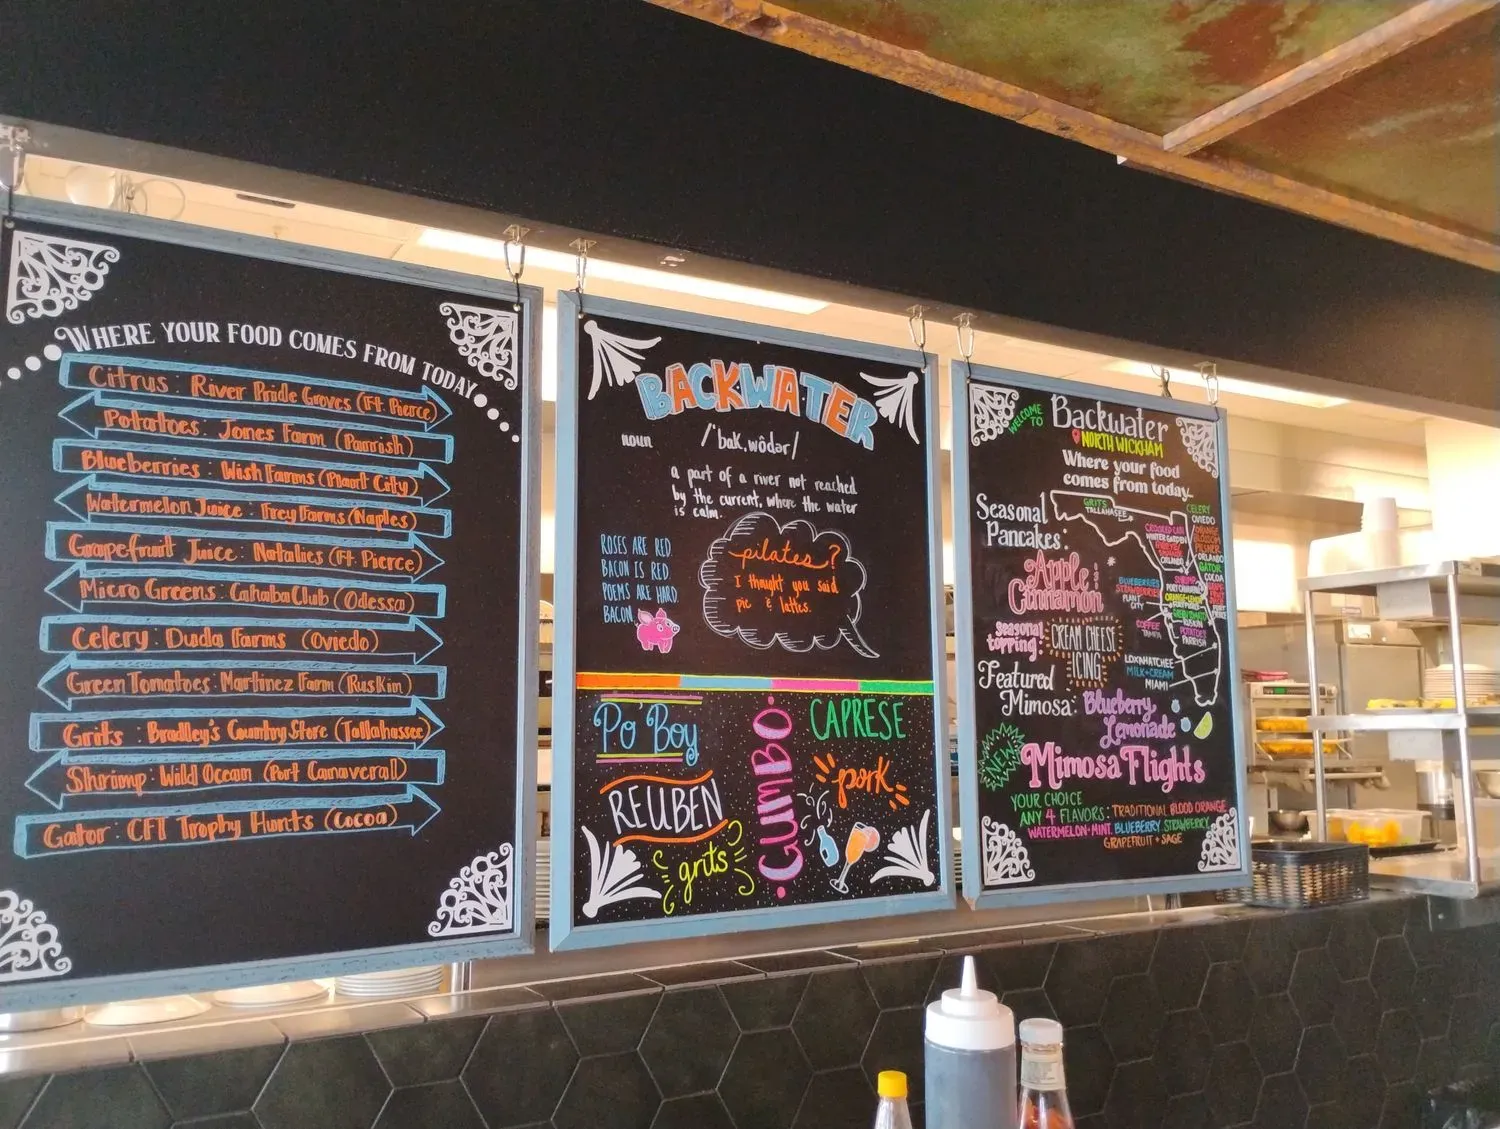 WHERE YOUR FOOD COMES FROM TODAY
Citrus: River Pride Groves (Ft. Pierce)
Potatoes: Jones Farm (Parrish)
Blueberries: Wish Farms (Plant City)
Watermelon Juice: Frey Farms (Naples)
Grapefruit Juice: Natalies (Ft. Pierce)
Micro Greens: Cahaba Club (Odessa)
Celery: Duda Farms (Oviedo)
Green Tomatoes: Martinez Farm (Ruskin)
Grits: Bradley's Country Store (Tallahassee)
Shrimp: Wild Ocean (Port Canaveral)
Gator: CFT Trophy Hunts (Cocoa)
BACKWATER
noun /'bak,wôdər/
a part of a river not reached
by the current, where the water
is calm.
ROSES ARE RED.
BACON IS RED.
POEMS ARE HARD.
BACON.
pilates?
I thought you said
pie & lattes.
Po' Boy
GUMBO
CAPRESE
REUBEN
pork
grits
WELCOME TO
Backwater
NORTH WICKHAM
Where your food
comes from today...
Seasonal
Pancakes:
Apple &
Cinnamon
seasonal
topping:
CREAM CHEESE
ICING
Featured
Mimosa:
Blueberry
Lemonade
GRITS
TALLAHASEE
CELERY
OVIEDO
WINTER GARDEN
ORLANDO
ORLANDO
GATOR
COCOA
SHRIMP
PORT CANAVERAL
BLUEBERRIES
STRAWBERRIES
PLANT
CITY
COFFEE
TAMPA
RUSKIN
POTATOES
PARRISH
LOXAHATCHEE
MILK+CREAM
MIAMI
NEW
Mimosa Flights
YOUR CHOICE
ANY 4 FLAVORS: TRADITIONAL BLOOD ORANGE
WATERMELON+MINT BLUEBERRY STRAWBERRY
GRAPEFRUIT + SAGE